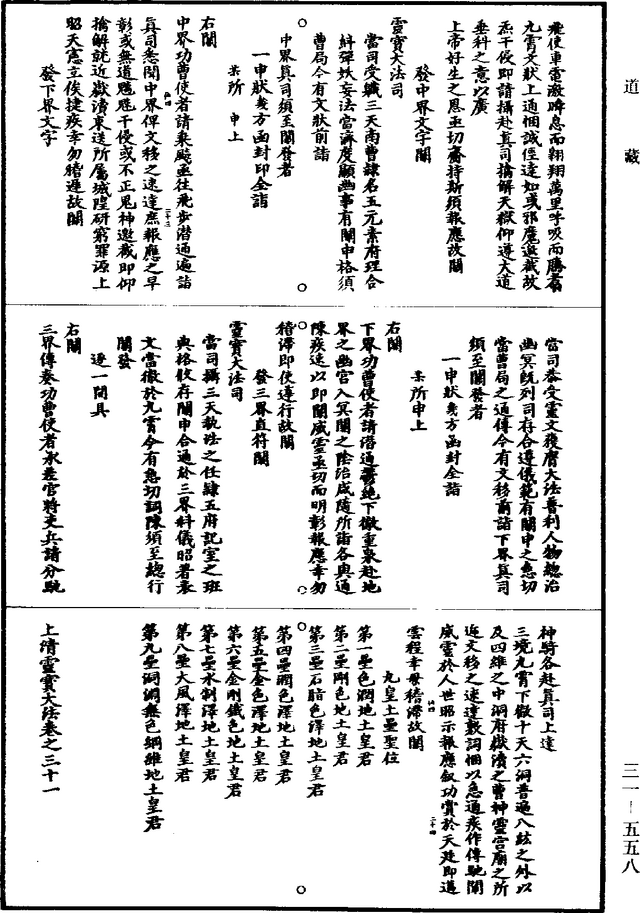 道藏
飛使車雷激瞬息而翱翔萬里呼吸而騰蹇
九霄文狀上通悃誠徑達如或邪魔遮截故
炁干侵即請攝赴真司擒解天獄仰遵大道
垂科之意以廣
上帝好生之恩亟切齋持斯須報應故關
發中界文字關
靈寶大法司
當司受職三天南曹隸名五元素府理合
糾彈妖妄法宮濟度顯幽事有關申格須
曹局今有文狀前詣
中界真司須至關發者
一申狀幾方函封印全詣
某所 申上
右關
中界功曹使者請乘飈亟往飛步潛通遍詣
真司悉關中界俾文移之速達庶報應之早
彰或無道魍魎干侵或不正鬼神邀截即仰
擒解就近嶽瀆東送所屬城隍研窮罪源上
昭天憲立俟捷疾幸勿稽遲故關
發下界文字
當司恭受靈文獲膺大法普利人物總治
幽冥既列司存合遵儀範有關申之急切
當曹局之通傳今有文移前詣下界真司
須至關發者
一申狀幾方函封全詣
某所申上
右關
下界功曹使者請潛通鬱絶下徹重泉赴地
界之幽宫入冥關之陰治咸隨所詣各與通
陳疾速以即關威靈亟切而明彰報應幸勿
稽滯即使遵行故關
發三界直符關
靈寶大法司
當司攝三天執法之任隸五府記室之班
典格攸存關申合通於三界科儀昭著表
文當徹於九霄今有急切詞陳須至總行
關發
逐一開具
右關
三界傳奏功曹使者承差官將吏兵請分馳
神騎各赴真司上達
三境九霄下徹十天六洞普遍八紘之外以
及四維之中洞府嶽瀆之曹神靈宫廟之所
返文移之速達敷詞悃以急通疾作傳馳開
威靈於人世昭示報應敘功賞於天廷即邁
雲程幸毋稽滯故關
九皇土壘聖位
第一壘色潤地土皇君
第二壘剛色地土皇君
第三壘石脂色澤地土皇君
第四壘潤色澤地土皇君
第五壘金色澤地土皇君
第六壘金剛鐵色地土皇君
第七壘水制澤地土皇君
第八壘大風澤地土皇君
第九壘洞淵無色綱維地土皇君
上清靈寶大法卷之三十一
三一—五五八